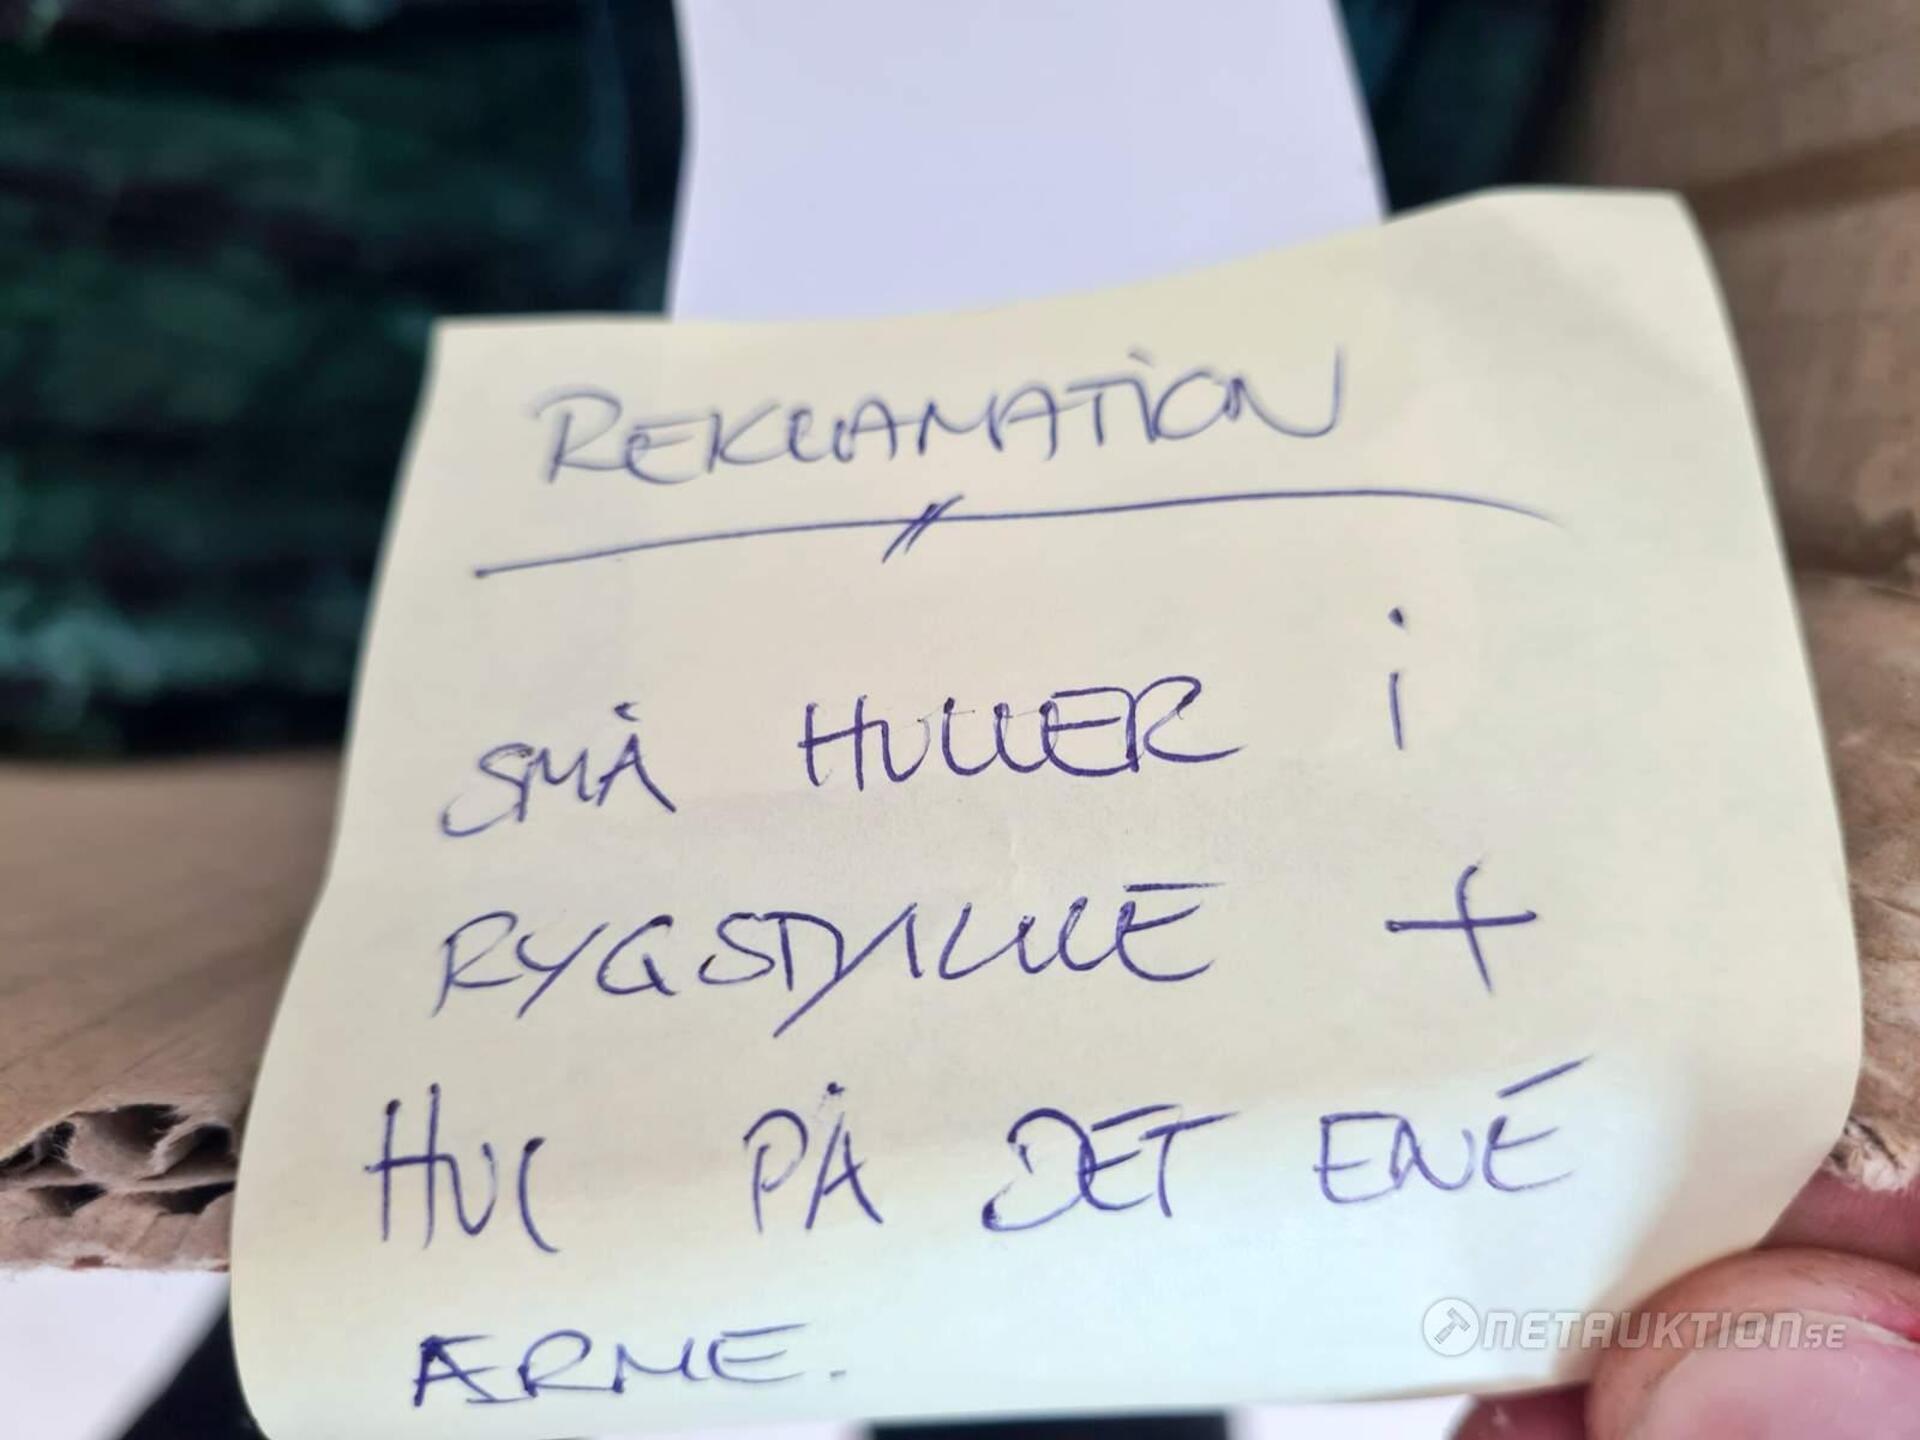 REKLAMATION
SMÅ HULLER i
RYGSTYKKE +
HUL PÅ DET ENE
ÆRME.
NETAUKTION.SE